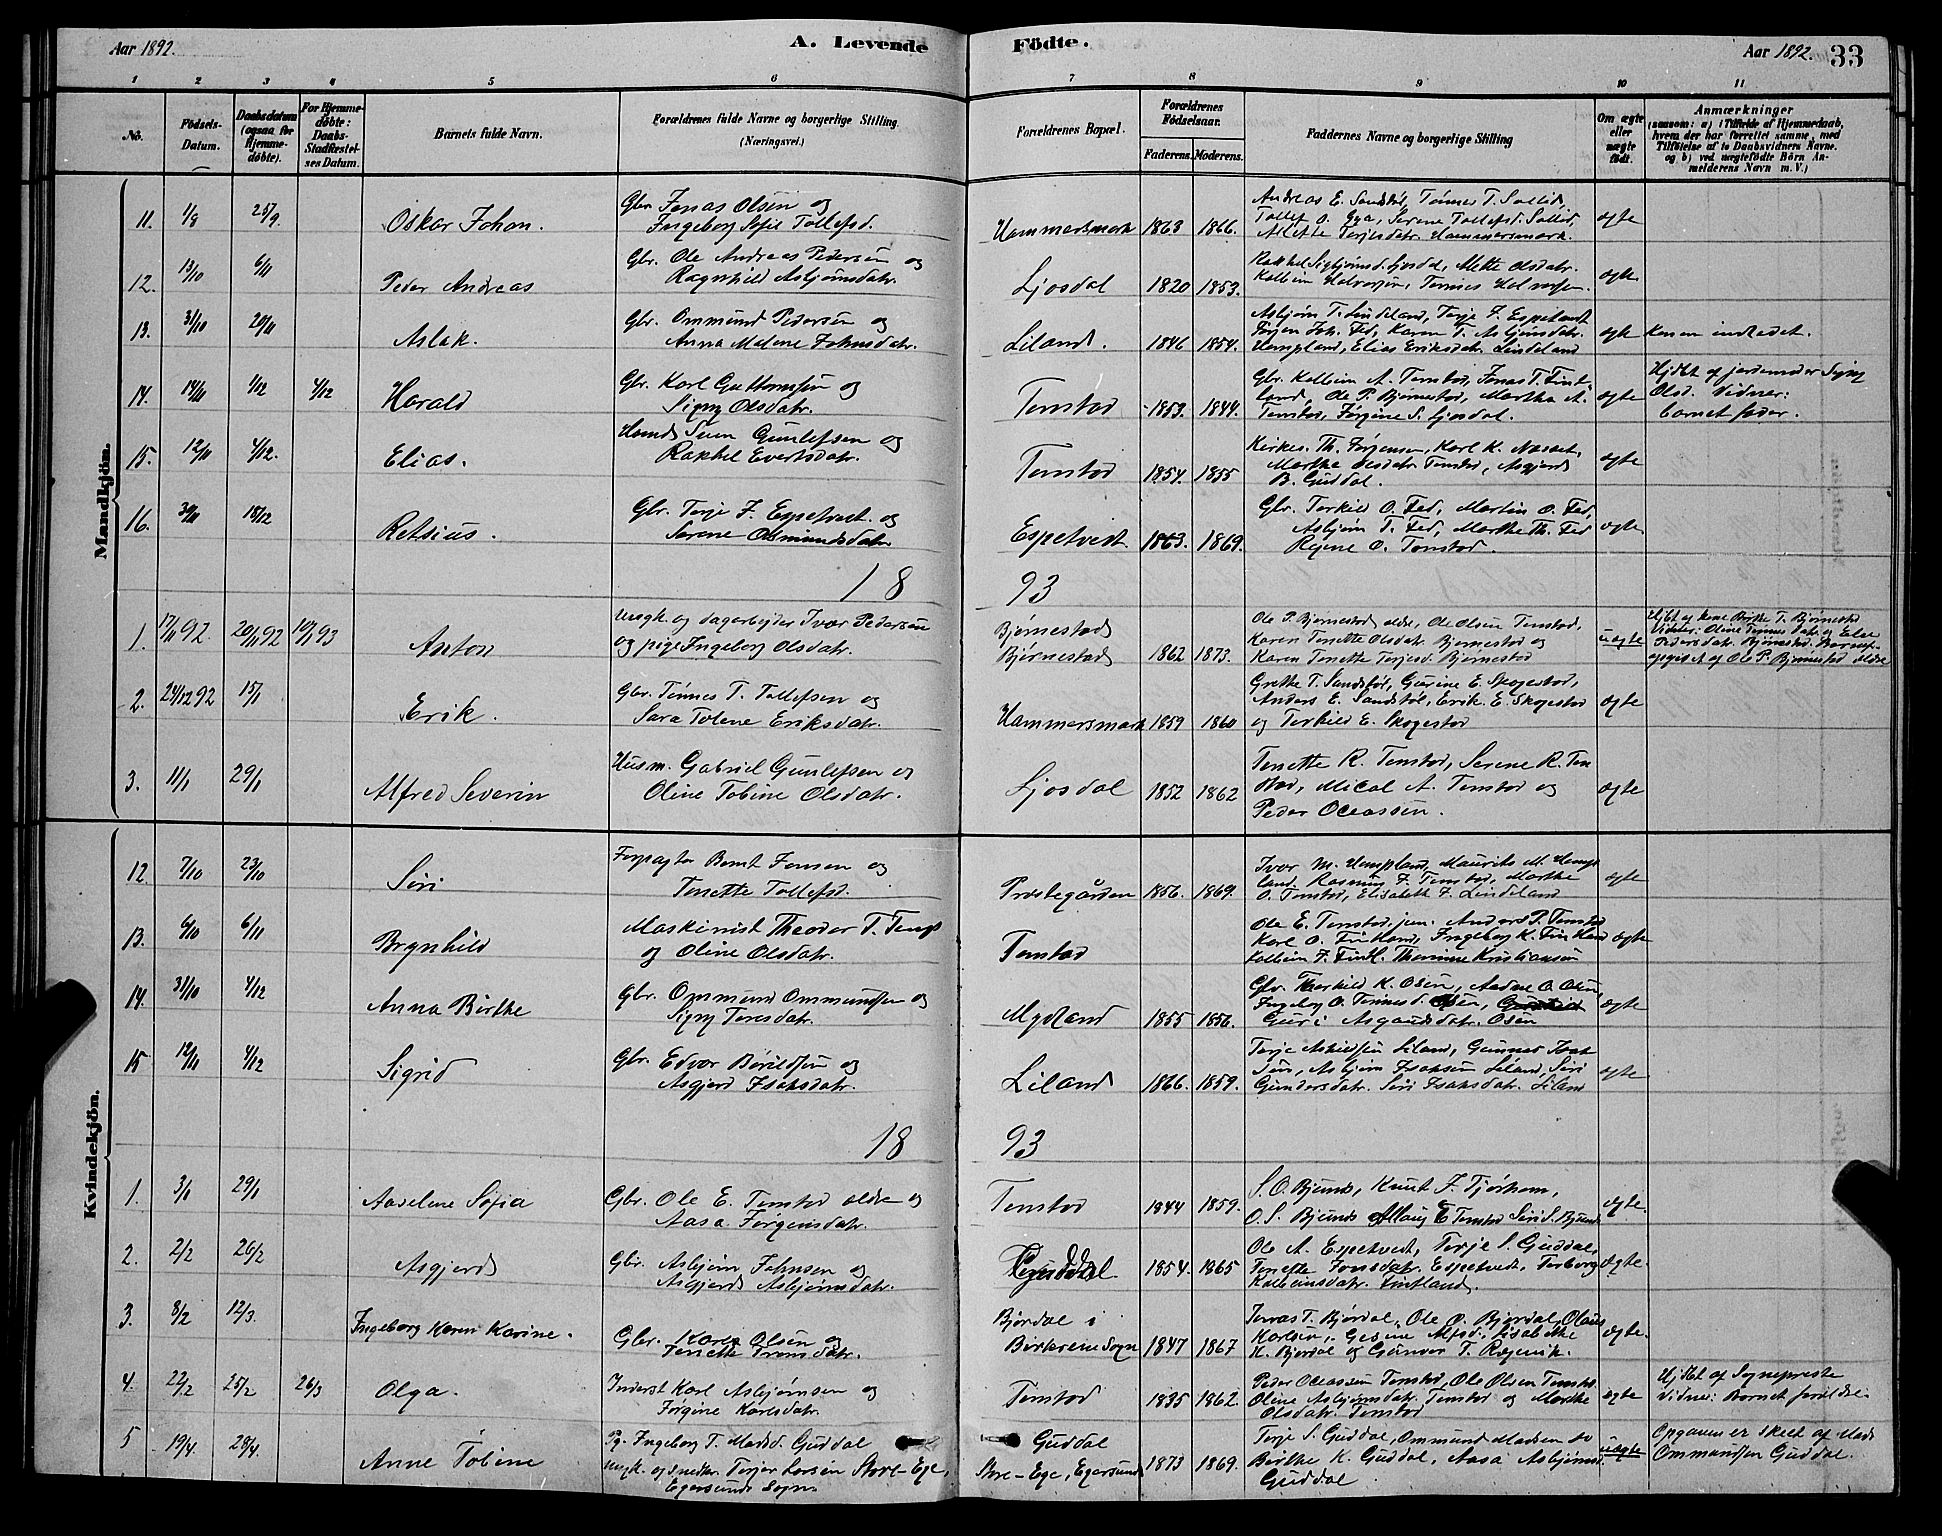 Aar 1892.
A. Levende Födte.
Aar 1892. 33
1 2 3 4 5 6 7 8 9 10 11
No.
Födsels-Datum.
Daabsdatum (ogsaa for Hjemmedöbte).
For Hjemmedöbte: Daabs-Stadfæstelses Datum.
Barnets fulde Navn.
Forældrenes fulde Navne og borgerlige Stilling
(Næringsvei.)
Forældrenes Bopæl.
Forældrenes Födselsaar.
Faderens. Moderens.
Faddernes Navne og borgerlige Stilling
Om ægte eller uægte födt.
Anmærkninger
(saasom: a) i Tilfælde af Hjemmedaab, hvem der har forrettet samme, med Tilföielse af to Daabsvidners Navne, og b) ved uægtefödte Börn Anmelderens Navn m. V.)
Mandkjön.
11. 1/8 25/9. Oskar Johan. Gbr. Jonas Olsen og
Ingeborg Sofie Tollefsd. Hammersmark 1863 1866. Andreas E. Sandstøl, Tønnes T. Sollid,
Tollef O. Gya, Serene Tollefsd. Sollid,
Alette Terjesdatr. Hammersmark. ægte
12. 13/10 6/11 Peder Andreas Gbr. Ole Andreas Pedersen og
Ragnhild Asbjørnsdatr. Ljosdal 1820 1853. Rakkel Sigbjørnsd. Ljosdal, Mette Olsdatr.
Kolbein Halvorsen, Tønnes Halvorsen. ægte
13. 31/10 20/11 Aslak. Gbr. Ommund Pedersen og
Anna Malene Johnsdatr. Liland. 1846 1854. Asbjørn T. Lindeland, Terje J. Espetvedt
Jørgen Joh. Fed, Karen T. Asbjørnsdatr.
Hompland, Elias Eriksdatr. Lindeland ægte Konen indledet.
14. 14/11 1/12 4/12 Harald Gbr. Karl Guttormsen og
Signy Olsdatr. Tonstad 1853. 1844. Gbr. Kolbein A. Tonstad, Jonas T. Fintland,
Ole P. Bjørnestad, Martha A.
Tonstad, Jørgine S. Ljosdal. ægte Hjdbt af jordemoder Signy
Olsd. Vidner:
barnet fader.
15. 12/11 4/12. Elias. Sven Gunlefsen og
Rakkel Evertsdatr. Tonstad 1854. 1855 Kirkes. Th. Jørgensen, Karl K.
Marthe Olsdatr. Tonstad, Asgjerd
B. Guddal. ægte
16. 30/11 18/12 Retsius. Gbr. Terje J. Espetvedt. og
Serene Osmundsdatr. Espetvedt. 1863. 1869. Gbr. Torkild O. Fed, Martin O. Fed,
Asbjørn T. Fed, Marthe Th. Fed
Regine O. Tonstad. ægte
18 93
1. 17/11 92. 20/11 92 10/1 93 Anton Ungk. og dagarbejder Ivar Pedersen
og pige Ingeborg Olsdatr. Bjørnestad
Bjørnestad 1862 1873. Ole P. Bjørnestad ældre, Ole Olsen Tonstad,
Karen Tonette Olsdatr Bjørnestad og
Karen Tonette Terjesd. Bjørnestad uægte Hjdbt af kone Birthe T. Bjørnestad
Vidner: Oline Tønnes datr og Else
Pedersdatr. Bjørnestad. Barnef.
opgivet af Ole P. Bjørnestad ældre
2. 24/12 92 15/1 Erik. Gbr. Tønnes T. Tollefsen og
Sara Tolene Eriksdatr. Hammersmark 1859 1860 Grethe T. Sandstøl, Gurine E. Skogestad,
Anders E. Sandstøl, Erik E. Skogestad
og Torkild E. Skogestad ægte
3. 11/1 29/1 Alfred Severin Husm. Gabriel Gunlefsen og
Oline Tobine Olsdatr. Ljosdal 1852 1862 Tonette R. Tonstad, Serene R. Tonstad,
Mical A. Tonstad og
Peder Oleassen. ægte
Kvindekjön.
12. 7/10 23/10 Siri Forpagter Bernt Jonsen og
Tonette Tollefsd. Præstegården 1856. 1869. Ivar M. Hompland, Maurits M. Hompland,
Rasmus J. Tonstad, Marthe
O. Tonstad, Elisabeth J. Lindeland ægte
13. 6/10 6/11 Brynhild Maskinist Theodor T.
og Oline Olsdatr. Tonstad Ole E. Tonstad jun. Anders P. Tonstad
Karl O. Fintland, Ingeborg K. Fintland
Kolbein J. Fintl. Thorinne Kristiansen ægte
14. 31/10 4/12 Anna Birthe Gbr. Ommund Ommundsen og
Signy Toresdatr. Mydland 1855 1856. Gbr. Thorkild K. Osen, Aadne O. Osen,
Ingeborg O. Tonnesd. Osen,
Guri Asgautsdatr. Osen ægte
15 12/11 4/12 Sigrid Gbr. Edvor Børildsen og
Asgjerd Isaksdatr. Liland 1866. 1859. Terje Askildsen Liland, Gunnar
Asbjørn Isaksen Liland, Siri
Gundersdatr. Siri Isaksdatr. Liland ægte
18 93
1. 3/1 29/1 Aaselene Sofia Gbr. Ole E. Tonstad ældre og
Aasa Jørgensdatr. Tonstad 1844 1859. S. O. Bjunes, Knut J. Tjørhom,
O. S. Bjunes E Tonstad Siri S. Bjunes ægte
2. 2/2 26/2 Asgjerd Gbr. Asbjørn Johnsen og
Asgjerd Asbjørnsdatr. Guddal 1854. 1865 Ole A. Espetvedt, Terje S. Guddal,
Tonette Jonsdatr. Espetvedt, Torborg
Kolbeinsdatr. Fintland. ægte
3. 8/2 12/3. Ingeborg Karen Karine. Gbr. Karl Olsen og
Tonette Tronsdatr. Bjørdal i
Birkrem Sogn 1847 1867 Jonas T. Bjørdal, Ole O. Bjørdal, Olaus
Karlsen, Gesine Alfsd. Lisabethe
K. Bjørdal og Gunvor T. ægte.
4. 22/2 25/2 26/3 Olga. Inderst Karl Asbjørnsen og
Jørgine Karlsdatr. Tonstad 1835 1862. Peder Oleassen Tonstad, Ole Olsen Tonstad
Oline Asbjørnsdatr Tonstad og Marthe
Olsdatr. Tonstad ægte Hjdbt af Sognepræst
Vidner: Barnets forældre
5 19/4. 28/4. Anne Tobine Pg. Ingeborg T. Madsd. Guddal
ungk. og snedker Terjer Larsen Store-Ege,
Egersunds Sogn Guddal
Store-Ege, Egersund 1873 1869. Terje S. Guddal, Ommund Madsen do
Birthe K. Guddal, Aasa Asbjørnsd.
Guddal uægte Opgaven er skeet af Mads
Ommundsen Guddal.